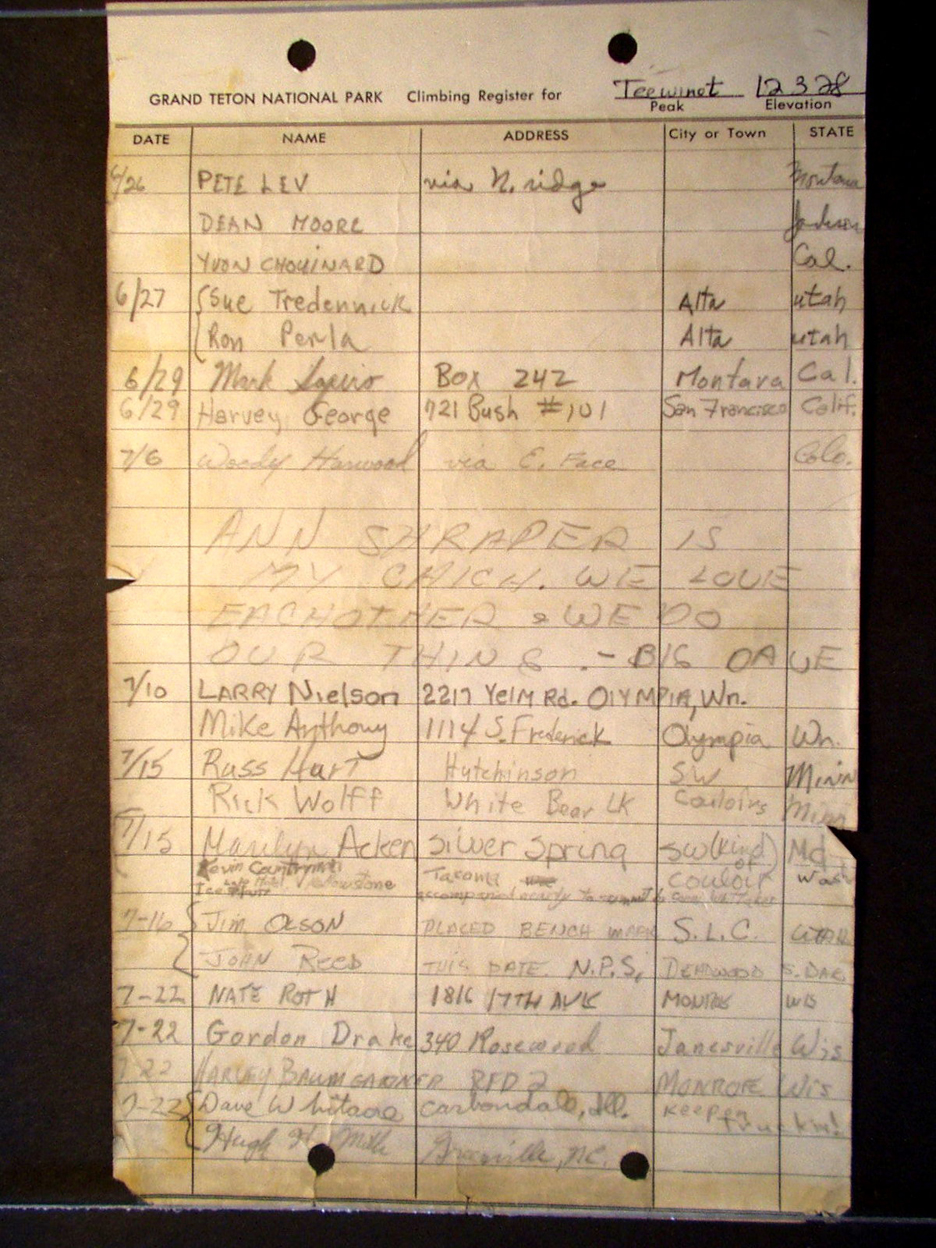 GRAND TETON NATIONAL PARK Climbing Register for Teewinot 12328
Peak Elevation
DATE NAME ADDRESS City or Town STATE
6/26 PETE LEV via N. ridge Montana
DEAN MOORE Jackson
YVON CHOUINARD Cal.
6/27 Sue Tredennick Alta utah
Ron Perla Alta utah
6/29 Mark Box 242 Montara Cal.
6/29 Harvey George 721 Bush #101 San Francisco Calif.
7/6 Woody Harwood via E. Face Colo.
ANN SHRAPER IS
MY CHICK. WE LOVE
EACHOTHER & WE DO
OUR THING. - BIG DAVE
7/10 LARRY Nielson 2217 Yelm Rd. OLYMPIA, Wn.
Mike Anthony 1114 S. Frederick Olympia Wn.
7/15 Russ Hurt Hutchinson SW Minn
Rick Wolff White Bear LK Couloirs Minn
7/15 Marilyn Acken Silver Spring SW (kind of) Md
Kevin Tacoma couloir Wash
Yellowstone accompanied
7-16 Jim OLSON PLACED BENCH MARK S.L.C. UTAH
JOHN REED THIS DATE. N.P.S. DEADWOOD S. DAK
7-22 NATE ROTH 1816 17TH AVE MONROE WIS
7-22 Gordon Drake 340 Rosewood Janesville Wis
7-22 HARLEY BAUMGARDNER RFD 2 MONROE Wis
7-22 Dave Whitacre Carbondale, Ill. Keep on Truckin!
Hugh H. Greenville, NC.